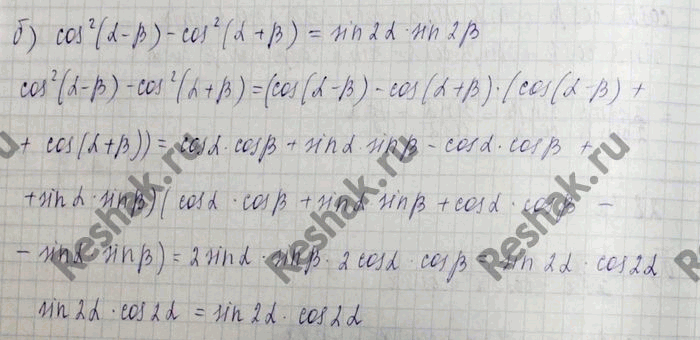 б) cos²(α-β) - cos²(α+β) = sin 2α · sin 2β
cos²(α-β) - cos²(α+β) = (cos(α-β) - cos(α+β) · (cos(α-β) +
+ cos(α+β)) = cosα · cosβ + sinα · sinβ - cosα · cosβ +
+ sinα · sinβ)(cosα · cosβ + sinα · sinβ + cosα · cosβ -
- sinα · sinβ) = 2 sinα · sinβ · 2 cosα · cosβ = sin 2α · cos2α
sin 2α · cos2α = sin 2α · cos2α
Reshak.ru
Reshak.ru
Reshak.ru